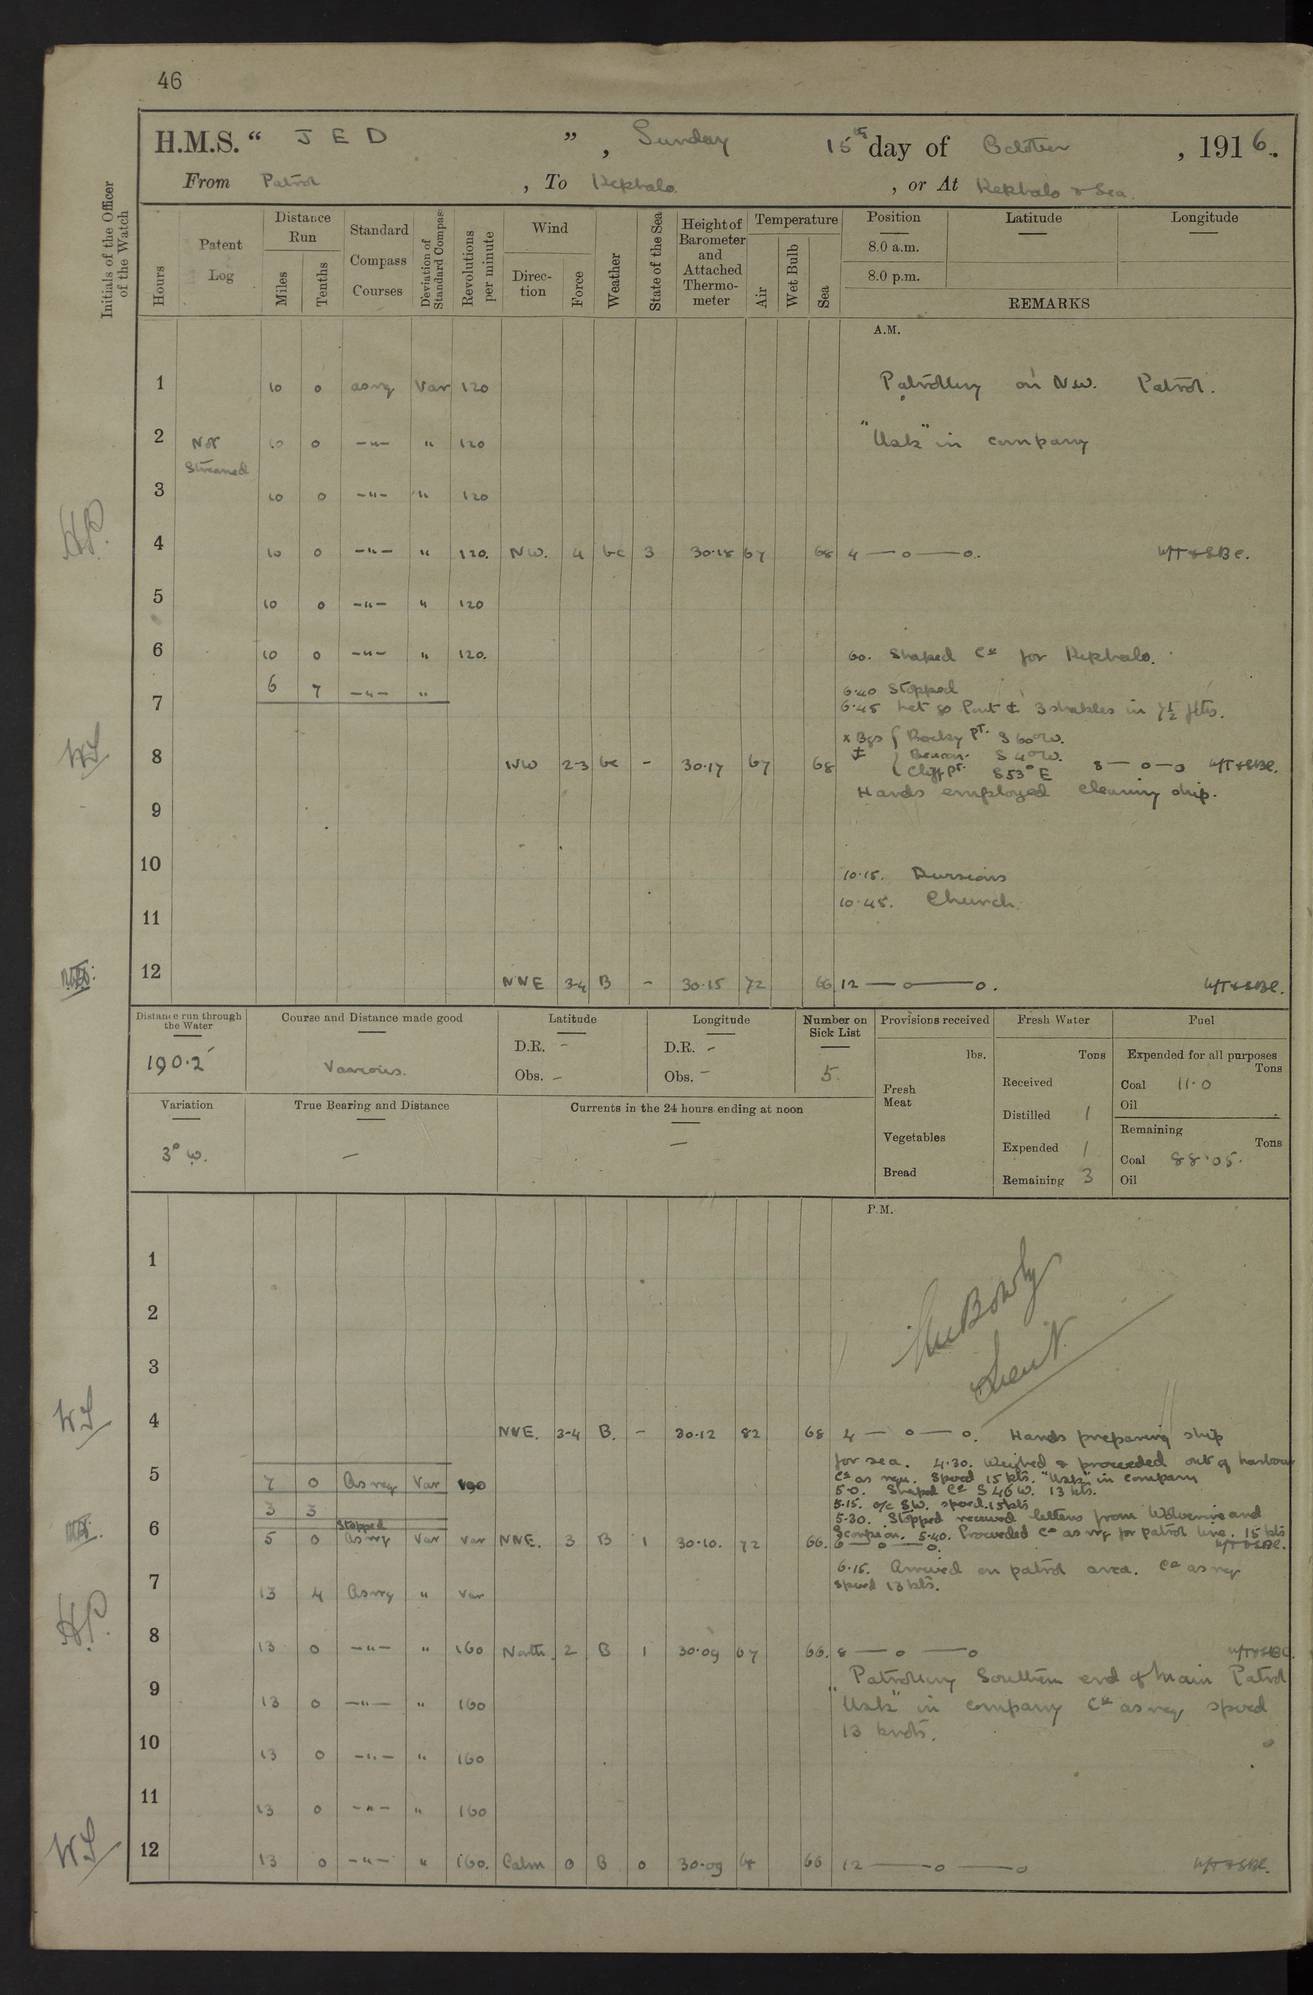 46
H.M.S. “ JED ” , Sunday 15th day of October , 1916.
From Patrol , To Kephalo , or At Kephalo & Sea.
Initials of the Officer of the Watch
Hours
Patent Log
Distance Run
Miles
Tenths
Standard Compass Courses
Deviation of Standard Compass
Revolutions per minute
Wind
Direction
Force
Weather
State of the Sea
Height of Barometer and Attached Thermometer
Temperature
Air
Wet Bulb
Sea
Position
Latitude
Longitude
8.0 a.m.
8.0 p.m.
REMARKS
A.M.
1 10 0 as req Var 120 Patrolling on N.W. Patrol.
2 Not 10 0 -"- " 120 "Usk" in company
Streamed
3 10 0 -"- " 120
4 10 0 -"- " 120. NW. 4 bc 3 30.18 67 68 4 — o — o. W/T & SBC.
5 10 0 -"- " 120
6 10 0 -"- " 120. 6.0. Shaped Co for Kephalo.
6 7 -"- " 6.40 Stopped
7 6.45 Let go Port 3 shackles in 7½ fths.
x Bgs { Rocky Pt. S 60° W.
8 NW 2-3 bc - 30.17 67 68 Beacon S 40° W. 8 — o — o W/T & SBC.
Cliff Pt. S 53° E
Hands employed cleaning ship.
9
10 10.15. Divisions
10.45. Church.
11
12 NNE 3-4 B - 30.15 72 66 12 — o — o. W/T & SBC.
Distance run through the Water
190.2
Course and Distance made good
Various.
Latitude
D.R. -
Obs. -
Longitude
D.R. -
Obs. -
Number on Sick List
5.
Provisions received
lbs.
Fresh Meat
Vegetables
Bread
Fresh Water
Tons
Received
Distilled 1
Expended 1
Remaining 3
Fuel
Expended for all purposes
Tons
Coal 11.0
Oil
Remaining
Tons
Coal 88.05.
Oil
Variation
3° W.
True Bearing and Distance
—
Currents in the 24 hours ending at noon
—
P.M.
1
2
3
Lieut.
4 NNE. 3-4 B. - 30.12 82 68 4 — o — o. Hands preparing ship
for sea. 4.30. Weighed & proceeded out of harbour
5 7 0 As req Var 190 Co as req. Speed 15 kts. "Usk" in company
5.0. Shaped Co S 46 W. 13 kts.
3 3 5.15. a/c SW. speed 15 kts
Stopped 5.30. Stopped received letters from Wolverine and
6 5 0 As req Var Var NNE. 3 B 1 30.10. 72 66. Scorpion. 5.40. Proceeded Co as req for patrol line. 15 kts
6 — o — o. W/T & SBC.
6.15. Arrived on patrol area. Co as req
7 13 4 As req " Var speed 13 kts.
8 13 0 -"- " 160 North. 2 B 1 30.09 67 66. 8 — o — o W/T & SBC.
Patrolling Southern end of Main Patrol
9 13 0 -"- " 160 "Usk" in company Co as req speed
13 knots.
10 13 0 -"- " 160
11 13 0 -"- " 160
12 13 0 -"- " 160. Calm 0 B 0 30.09 66 12 — o — o W/T & SBC.